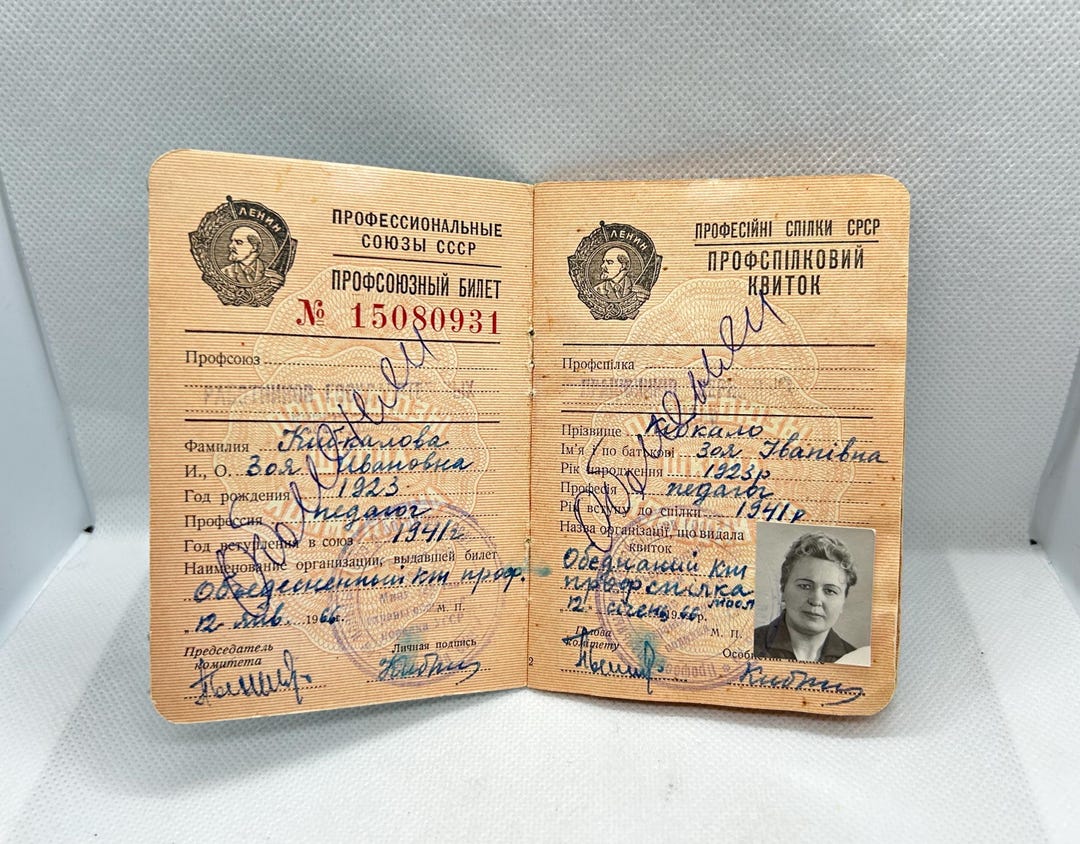 ЛЕНИН
ПРОФЕССИОНАЛЬНЫЕ
СОЮЗЫ СССР
ПРОФСОЮЗНЫЙ БИЛЕТ
№ 15080931
Профсоюз
РАБОТНИКОВ
Фамилия Кибкалова
И., О. Зоя Ивановна
Год рождения 1923
Профессия педагог
Год вступления в союз 1941 г
Наименование организации, выдавшей билет
Объединенный км проф.
"12 янв. 1966 г.
М. П.
Председатель
комитета
Личная подпись
ЛЕНИН
ПРОФЕСІЙНІ СПІЛКИ СРСР
ПРОФСПІЛКОВИЙ
КВИТОК
Профспілка
Прізвище Кібкало
Ім'я і по батькові Зоя Іванівна
Рік народження 1923р
Професія педагог
Рік вступу до спілки 1941р
Назва організації, що видала
квиток
Обєднаний км
профспілка
"12 січень 1966
М. П.
Голова
комітету
2